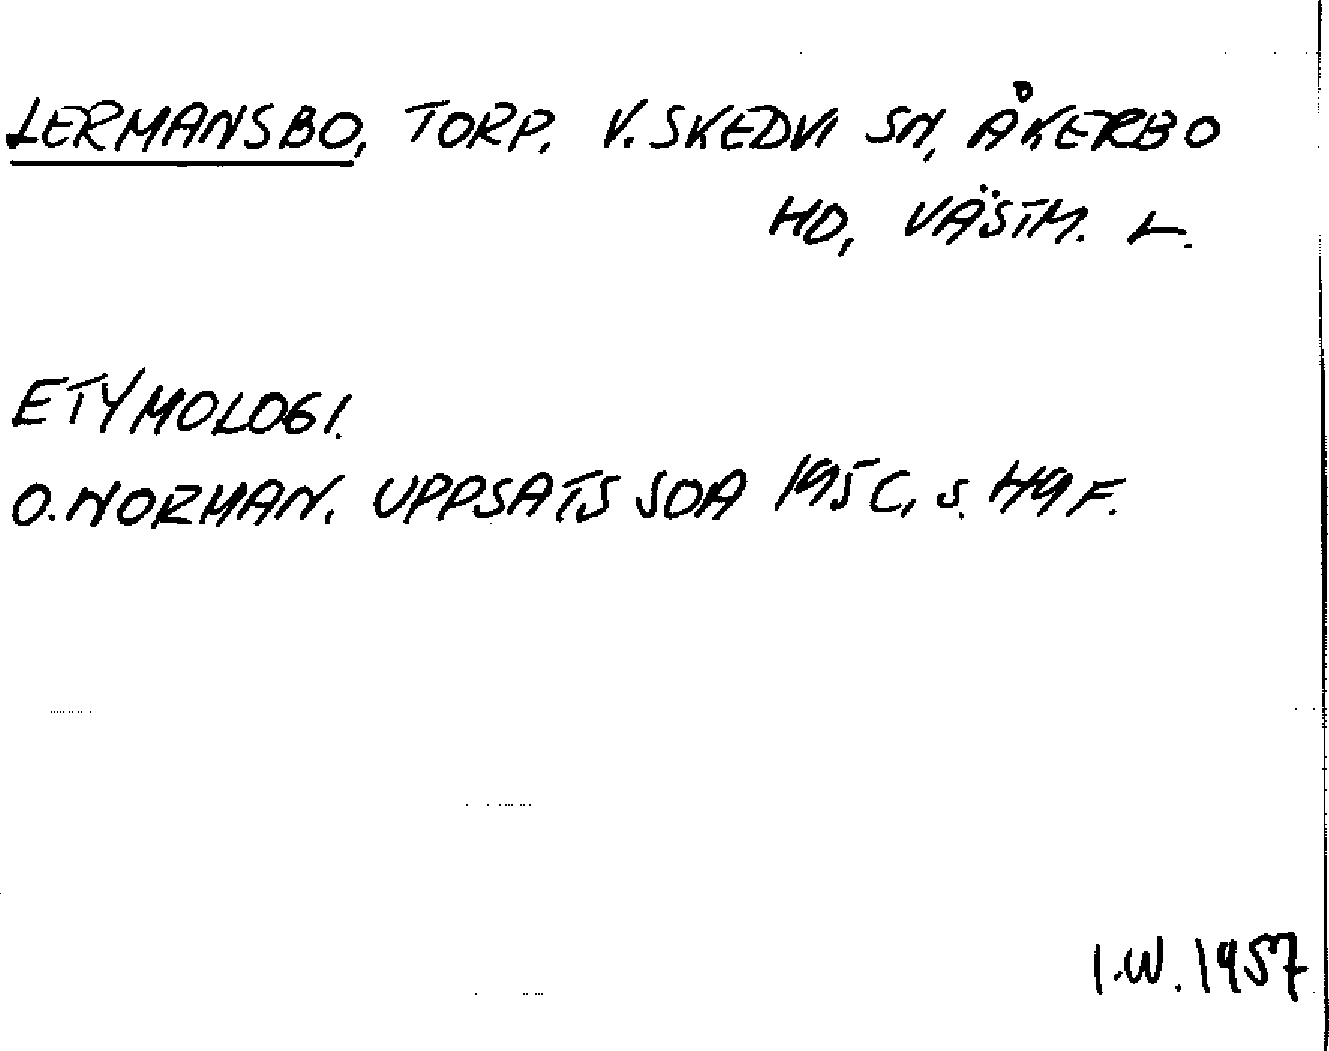 LERMANSBO, TORP. V. SKEDVI SN, ÅKERBO
HD, VÄSTM. L.
ETYMOLOGI.
O. NORMAN. UPPSATS SOA 1956, s. 49 F.
I.W. 1957